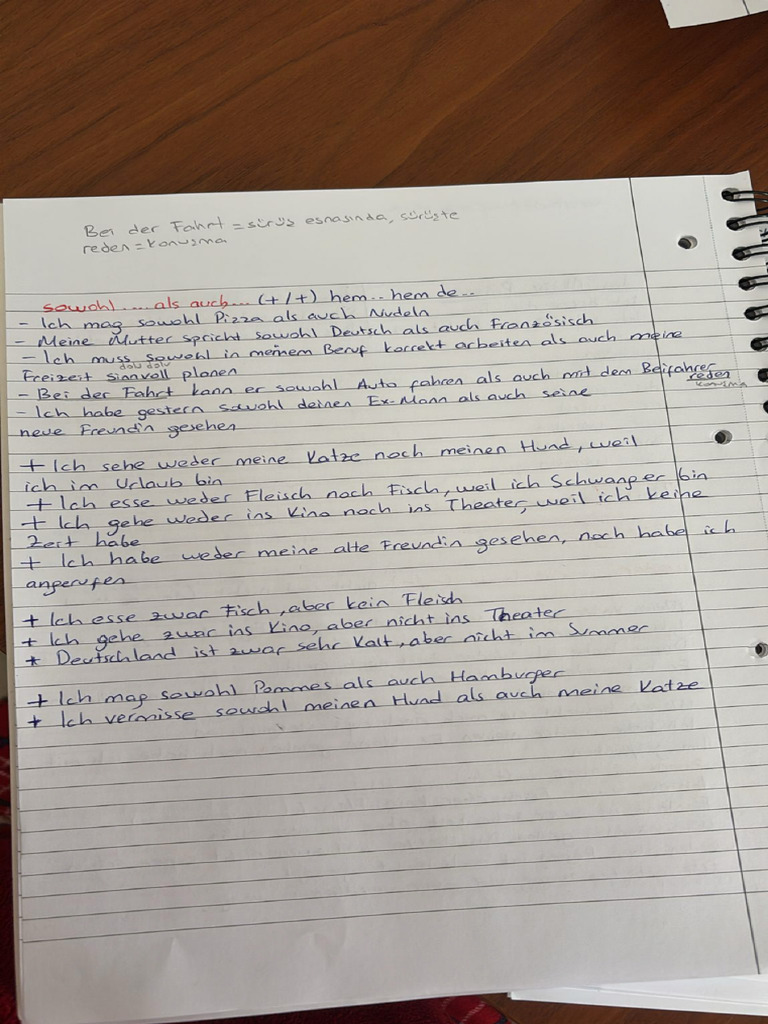 Bei der Fahrt = sürüş esnasında, sürüşte
reden = konuşma
sowohl .... als auch... (+/+) hem.. hem de..
- Ich mag sowohl Pizza als auch Nudeln
- Meine Mutter spricht sowohl Deutsch als auch Französisch
- Ich muss sowohl in meinem Beruf korrekt arbeiten als auch meine
dolu dolu
Freizeit sinnvoll planen
- Bei der Fahrt kann er sowohl Auto fahren als auch mit dem Beifahrer
reden
konuşma
- Ich habe gestern sowohl deinen Ex-Mann als auch seine
neue Freundin gesehen
+ Ich sehe weder meine Katze noch meinen Hund, weil
ich im Urlaub bin
+ Ich esse weder Fleisch noch Fisch, weil ich Schwanger bin
+ Ich gehe weder ins Kino noch ins Theater, weil ich keine
Zeit habe
+ Ich habe weder meine alte Freundin gesehen, noch habe ich
angerufen
+ Ich esse zwar Fisch, aber kein Fleisch
+ Ich gehe zwar ins Kino, aber nicht ins Theater
* Deutschland ist zwar sehr Kalt, aber nicht im Summer
+ Ich mag sowohl Pommes als auch Hamburger
+ Ich vermisse sowohl meinen Hund als auch meine Katze